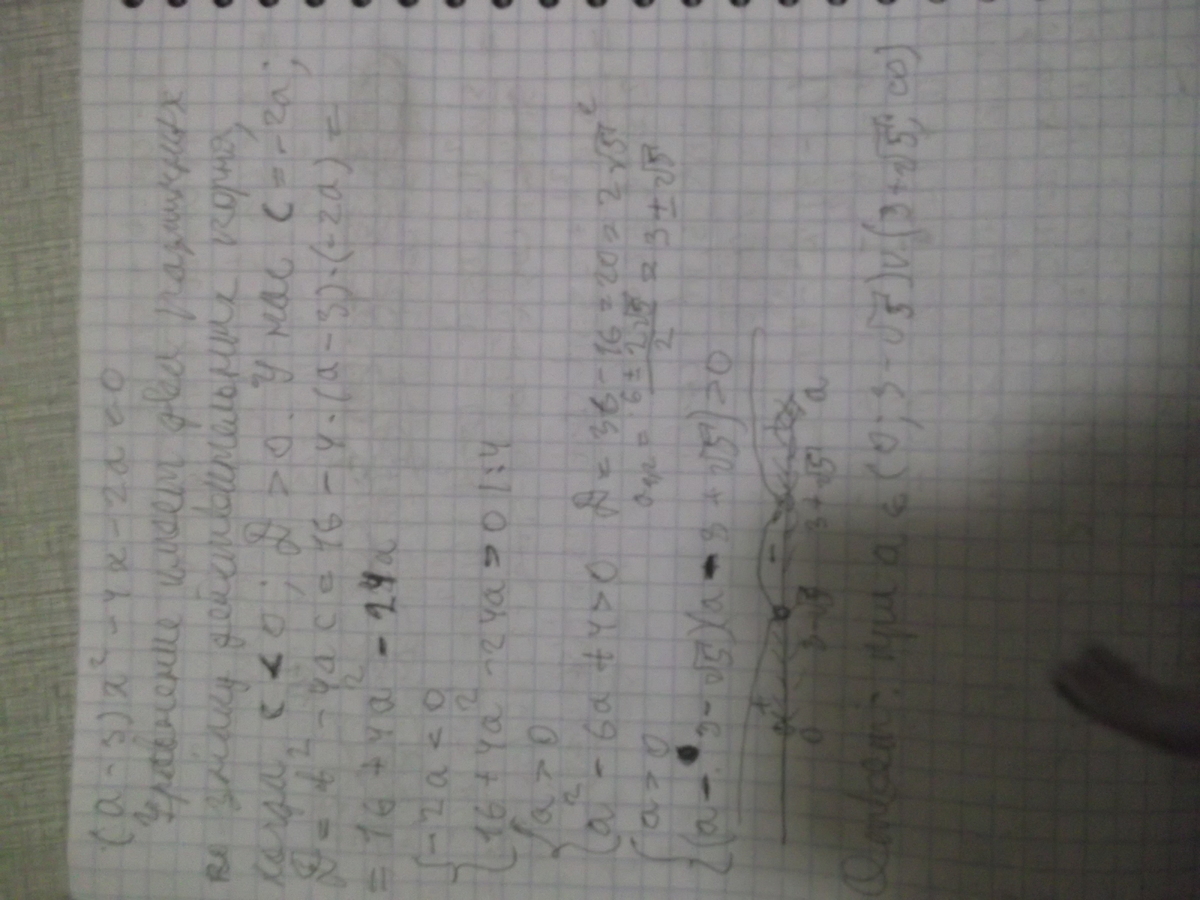 (a-3)x²-4x-2a=0
Уравнение имеет два различных
по знаку действительных корня,
когда c<0; D>0. У нас c=-2a;
D=b²-4ac=16-4·(a-3)·(-2a)=
=16+4a²-24a
{-2a<0
{16+4a²-24a>0 |:4
{a>0
{a²-6a+4>0 D=36-16=20=2√5²
= 6±2√5/2 = 3±√5
{a>0
{(a-3-√5)(a-3+√5)>0
+ - +
0 3-√5 3+√5 a
Ответ: при a ∈ (0; 3-√5)∪(3+√5; ∞)